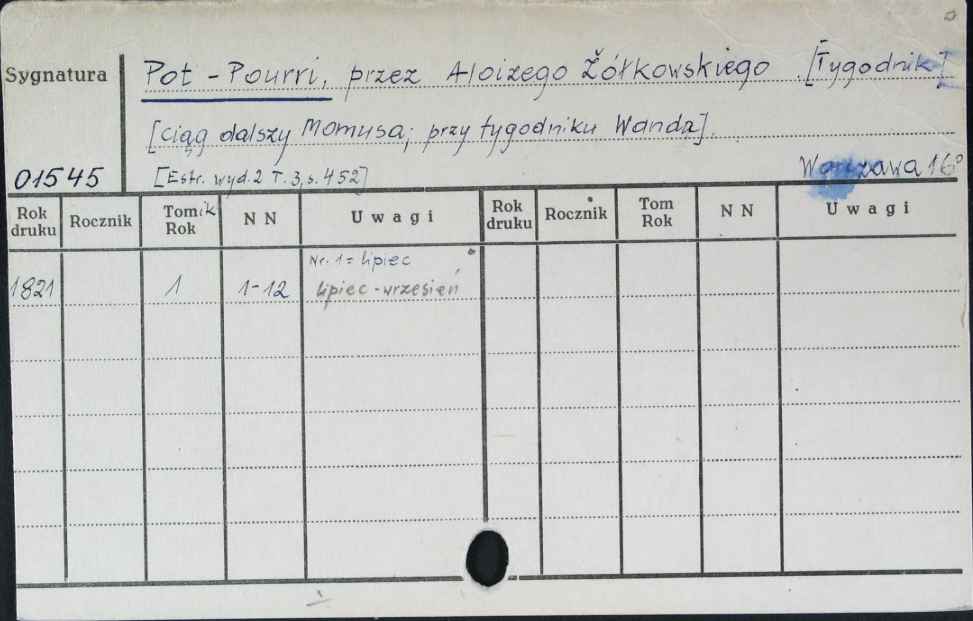 Sygnatura
Pot - Pourri, przez Aloizego Żółkowskiego. [Tygodnik]
[ciąg dalszy Momusa; przy tygodniku Wanda].
01545
[Estr. wyd. 2 T. 3, s. 452]
Warszawa 16°
Rok druku Rocznik Tomik Rok N N Uwagi Rok druku Rocznik Tom Rok N N Uwagi
Nr. 1 = lipiec
1821 1 1-12 lipiec - wrzesień